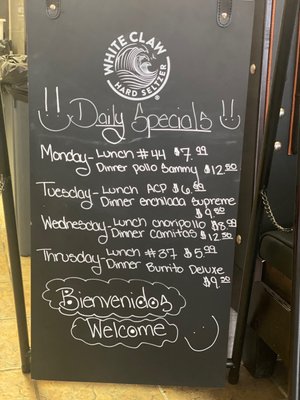 WHITE CLAW
HARD SELTZER
Daily Specials
Monday - Lunch #44 $7.99
Dinner pollo Sammy $12.50
Tuesday - Lunch ACP $6.99
Dinner enchilada Supreme
$9.50
Wednesday - Lunch choripollo $8.99
Dinner Carnitas $12.50
Thrusday - Lunch #37 $5.99
Dinner Burrito Deluxe
$9.50
Bienvenidos
Welcome